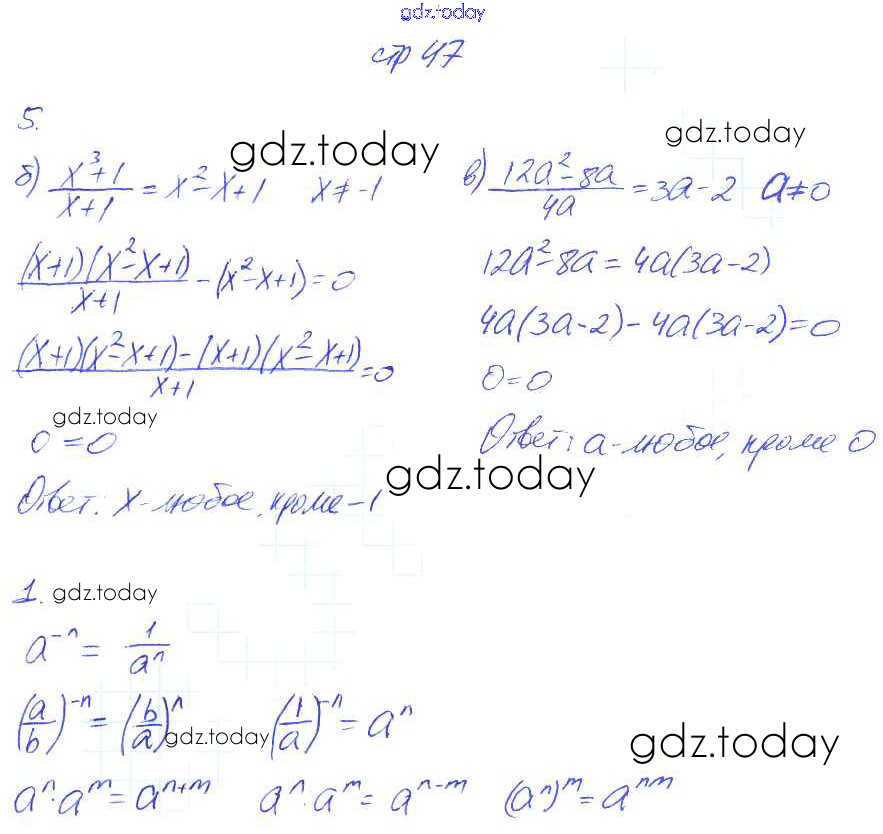 gdz.today
стр 47
5.
gdz.today
gdz.today
б) (x³+1)/(x+1) = x²-x+1   x ≠ -1
в) (12a²-8a)/(4a) = 3a-2   a≠0
((x+1)(x²-x+1))/(x+1) - (x²-x+1) = 0
12a²-8a = 4a(3a-2)
((x+1)(x²-x+1)-(x+1)(x²-x+1))/(x+1) = 0
4a(3a-2)-4a(3a-2)=0
0=0
gdz.today
0=0
Ответ: a-любое, кроме 0
gdz.today
Ответ: x-любое, кроме -1
1.
gdz.today
a⁻ⁿ = 1/aⁿ
(a/b)⁻ⁿ = (b/a)ⁿ   (1/a)⁻ⁿ = aⁿ
gdz.today
gdz.today
aⁿ·aᵐ = aⁿ⁺ᵐ   aⁿ:aᵐ = aⁿ⁻ᵐ   (aⁿ)ᵐ = aⁿᵐ